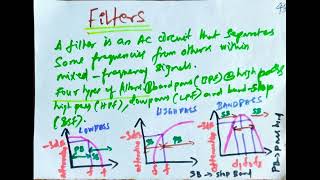 Filters
A filter is an AC circuit that separates
some frequencies from others within
mixed-frequency signals.
Four types of filters: band pass (BPF) high pass
high pass (HPF), low pass (LPF) and band-stop
(BSF).
LOWPASS
HIGHPASS
BANDPASS
-3dB
-3dB
-3dB
PB
SB
SB
PB
f
f
f
f1 f0 f2
SB → Stop Band
PB → pass band